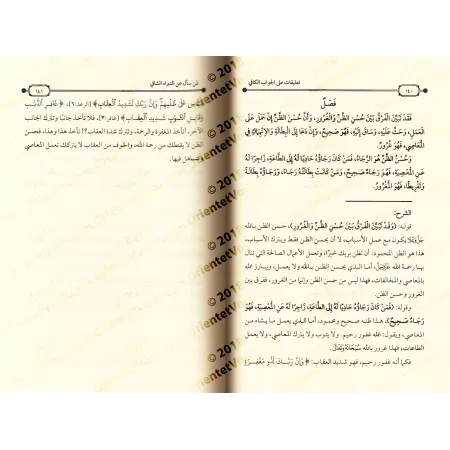 تعليقات على الجواب الكافي
١٤٠
فَصْلٌ
فَقَدْ تَبَيَّنَ الْفَرْقُ بَيْنَ حُسْنِ الظَّنِّ وَالْغُرُورِ، وَأَنَّ حُسْنَ الظَّنِّ إِنْ حَمَلَ عَلَى
الْعَمَلِ، وَحَثَّ عَلَيْهِ، وَسَاقَ إِلَيْهِ، فَهُوَ صَحِيحٌ، وَإِنْ دَعَا إِلَى الْبِطَالَةِ وَالِانْهِمَاكِ فِي
الْمَعَاصِي، فَهُوَ غُرُورٌ.
وَحُسْنُ الظَّنِّ هُوَ الرَّجَاءُ، فَمَنْ كَانَ رَجَاؤُهُ حَادِيًا لَهُ إِلَى الطَّاعَةِ، زَاجِرًا لَهُ
عَنِ الْمَعْصِيَةِ، فَهُوَ رَجَاءٌ صَحِيحٌ، وَمَنْ كَانَتْ بِطَالَتُهُ رَجَاءً، وَرَجَاؤُهُ بِطَالَةً
وَتَفْرِيطًا، فَهُوَ الْمَغْرُورُ.
الشرح:
قوله: (وَقَدْ تَبَيَّنَ الْفَرْقُ بَيْنَ حُسْنِ الظَّنِّ وَالْغُرُورِ)، حسن الظن بالله
جَلَّوَعَلَا يكون مع عمل الأسباب، لا أن يحسن الظن فقط ويترك الأسباب،
هذا هو الظن المحمود: أن تظن بربك خيرًا، وتعمل الأعمال الصالحة التي تنال
بها رحمة الله عَزَّوَجَلَّ، أما الذي يحسن الظن بالله ولا يعمل، ويبارز الله
بالمعاصي والمخالفات، فهذا ليس من حسن الظن وإنما من الغرور، ففرق بين
الغرور وحسن الظن.
وقوله: (فَمَنْ كَانَ رَجَاؤُهُ حَادِيًا لَهُ إِلَى الطَّاعَةِ، زَاجِرًا لَهُ عَنِ الْمَعْصِيَةِ، فَهُوَ
رَجَاءٌ صَحِيحٌ)، هذا ظنه صحيح ومحمود، أما الذي يعمل ما يشاء من
المعاصي، ويقول: الله غفور رحيم. ولا يتوب ولا يترك المعاصي، ولا يعمل
الطاعات، فهذا غرور بالله سُبْحَانَهُ وَتَعَالَى.
فكما أنه غفور رحيم، فهو شديد العقاب: ﴿وَإِنَّ رَبَّكَ لَذُو مَغْفِرَةٍ
لمن سأل عن الدواء الشافي
١٤١
لِّلنَّاسِ عَلَىٰ ظُلْمِهِمْ وَإِنَّ رَبَّكَ لَشَدِيدُ الْعِقَابِ﴾ [الرعد:٦]، ﴿غَافِرِ الذَّنبِ
وَقَابِلِ التَّوْبِ شَدِيدِ الْعِقَابِ﴾ [غافر:٣]، فلا تأخذ جانبًا وتترك الجانب
الآخر، أتأخذ المغفرة والرحمة، وتترك شدة العقاب؟! تأخذ هذا وهذا، فحسن
الظن لا يقنطك من رحمة الله، والخوف من العقاب لا يتركك تعمل المعاصي
وتتساهل فيها.